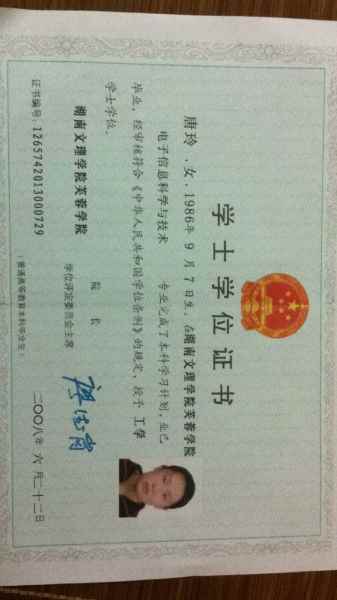 学士学位证书
唐玲，女，1986年9月7日生。在湖南文理学院芙蓉学院
电子信息科学与技术 专业完成了本科学习计划，业已
毕业，经审核符合《中华人民共和国学位条例》的规定，授予工学
学士学位。
湖南文理学院芙蓉学院
院长
学位评定委员会主席
证书编号：1265742013000729
二〇〇八年六月二十二日
（普通高等教育本科毕业生）